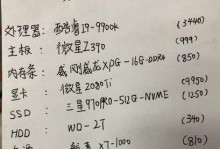 处理器: 酷睿I9-9900K (3440)
主板: 微星Z390 (999)
内存条: 威刚威龙XPG-16G-DDR4 (850)
显卡 微星2080Ti (9950)
SSD 三星970PRO-512G-NVME (1250)
HDD WD-2T (340)
X7-1000 (810)